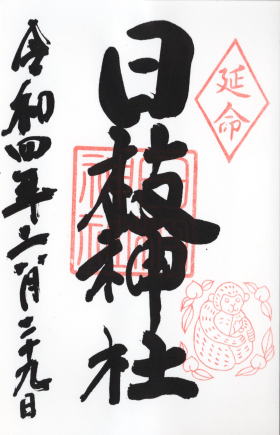 延命
日枝神社
令和四年六月二十九日